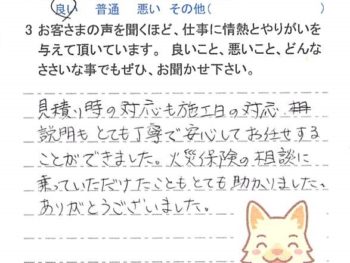 良い 普通 悪い その他(
3 お客さまの声を聞くほど、仕事に情熱とやりがいを
与えて頂いています。 良いこと、悪いこと、どんな
ささいな事でもぜひ、お聞かせ下さい。
見積り時の対応も施工日の対応
説明もとても丁寧で安心してお任せする
ことができました。火災保険の相談に
乗っていただけたこともとても助かりました。
ありがとうございました。